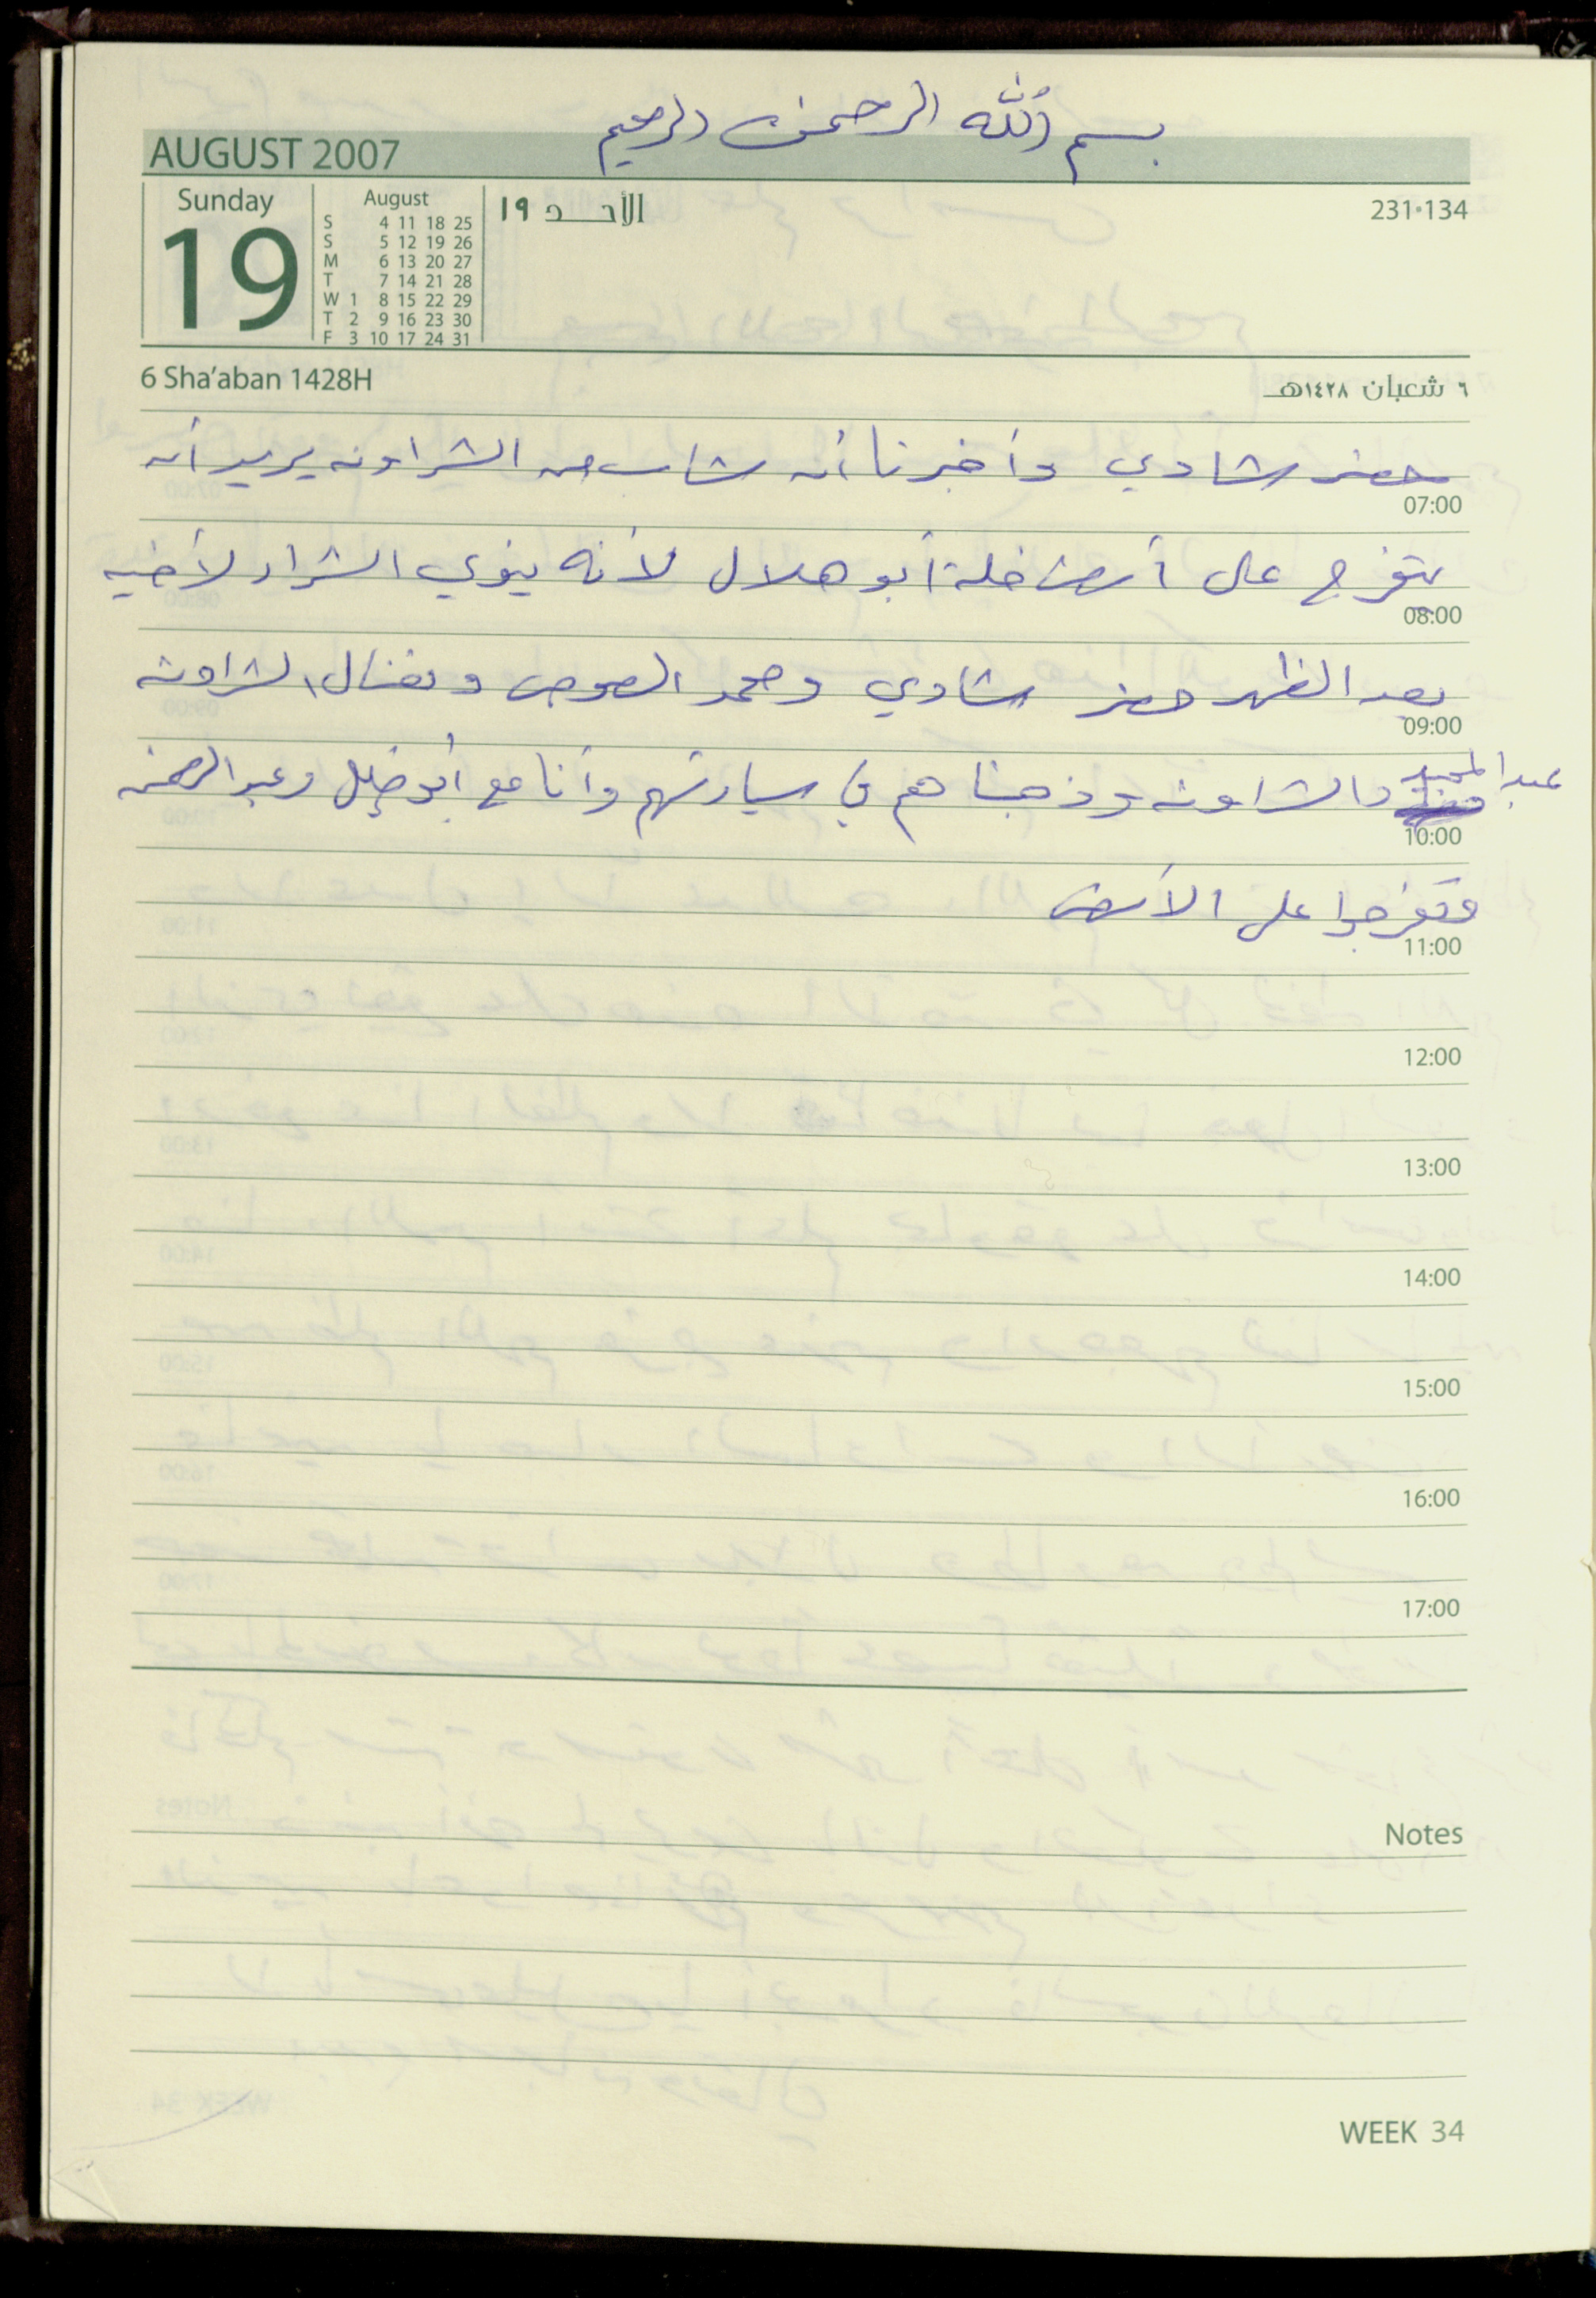 بسم الله الرحمن الرحيم
AUGUST 2007
Sunday
19
August
S 4 11 18 25
S 5 12 19 26
M 6 13 20 27
T 7 14 21 28
W 1 8 15 22 29
T 2 9 16 23 30
F 3 10 17 24 31
الأحد ١٩
231•134
6 Sha'aban 1428H
٦ شعبان ١٤٢٨هـ
حضر شادي وأخبرنا أن شاب من الشراونه يريد أن
07:00
يتفرج على أرض خلة أبو هلال لأنه ينوي الشراء لأخيه
08:00
بعد الظهر حضر شادي ومحمد العموص ونضال الشراونه
09:00
عبد المجيد والشراونه وذهبنا هم في سيارتهم وأنا مع أبو خليل وعبد الرحمن
10:00
وتفرجوا على الأرض
11:00
12:00
13:00
14:00
15:00
16:00
17:00
Notes
WEEK 34